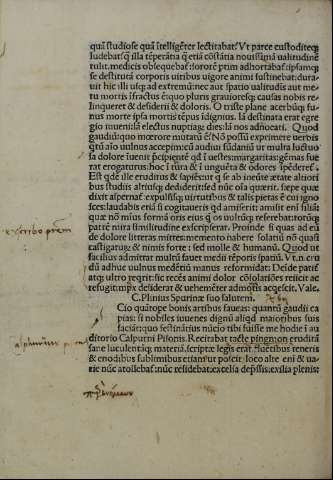 quā studiose quā ītelligēter lectitabat? Vt parce custoditeq;
ludebat? q̄ illa tēperātia q̄ patiētia q̄ etiā cōstātia nouissimā ualitudinē
tulit. medicis obsequebat: sororē prīm adhortabat. ipsamq;
se destitutā corporis uiribus uigore animi sustinebat: dura-
uit hic illi usq; ad extremū: nec aut spatio ualitudis aut me
tu mortis īfractus ē quo pluris grauioresq; causas nobis re-
linqueret & desiderii & doloris. O triste plane acerbūq; fu-
nus morte ipsa mortis tēpus īdignius. Iā destinata erat egre
gio iuueni: iā electus nuptiaɤ dies: iā nos aduocati. Quod
gaudiū quo mœrore mutatū ē? Nō possū exprimere uerbis
quātū aīo uulnus acceperim: cū audiui fūdanū ut multa luctuo
sa dolor īuenit p̄cipientē qd ī uestes: margaritas: gēmas fue
rat erogaturus: hoc ī tura & ī unguēta & odores īpēderet.
Est qdē ille eruditus & sapiēs: ut q̄ se ab ineūte ætate altiori
bus studiis altiusq; dediderit: sed nūc oīa quæ
dixit aspernat expulsisq; uirtutibus & talis pietas ē cui igno
sces: laudabis etiā si cogitaueris qd amiserit: amisit eni filiā:
quæ nō mīus formā oris eius q̄ os uultūq; referebat: totūq;
patrē mira similitudine exscripserat. Proinde si quas ad eū
de dolore litteras mittes: memento habere solatiū nō quasi
castigatoɤ & nimis forte: sed molle & humanū. Quod ut
facilius admittat multū faciet medii tēporis spatiū. Vt.n.cru
dū adhuc uulnus medētiū manus reformidat: Deinde patif
atq; ultro reqrit: sic recēs animi dolor cōsolatiōes reiicit ac
refugit: mox desiderat & uehemēter admotis acqescit. Vale.
C. Plinius Spurinæ suo salutem.
Cio quātope bonis artibus faueas: quantū gaudii ca
pias: si nobiles iuuenes dignū aliqd maioribus suis
faciāt: quo festinātius nūcio tibi fuisse me hodie ī au
ditorio Calpurni Pisonis. Recitabat
sane luculentāq; materiā. scriptæ legis erat fluētibus teneris
& enodibus sublimibus etiam ut poscit loco: apte eni & ua-
rie nūc attollebat nūc residebat. excelsa depssis: exilia plenis: